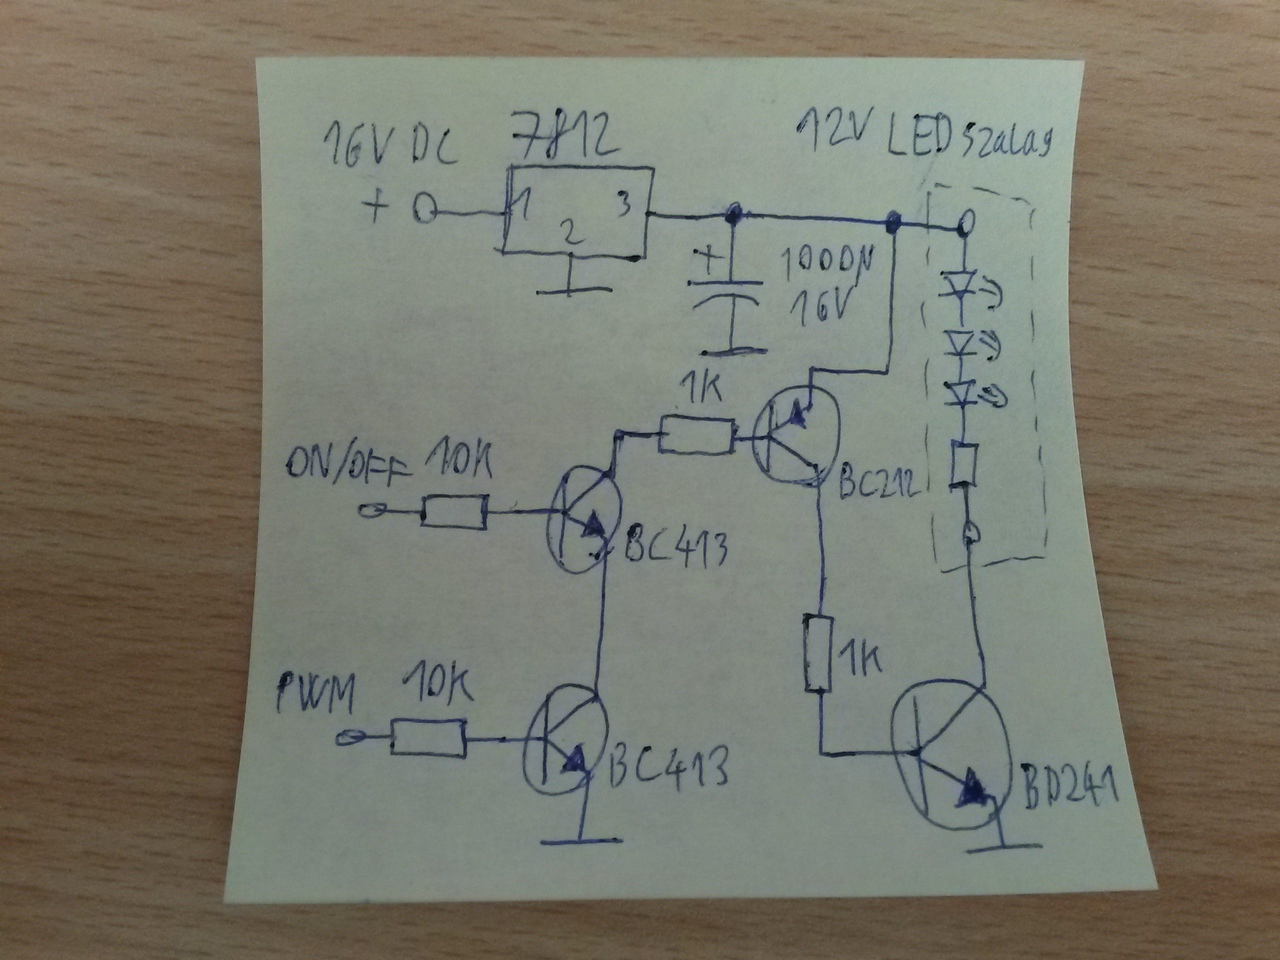 16V DC
7812
12V LED szalag
+
1
2
3
+
1000µ
16V
1K
ON/OFF
10K
BC413
BC212
1K
PWM
10K
BC413
BD241